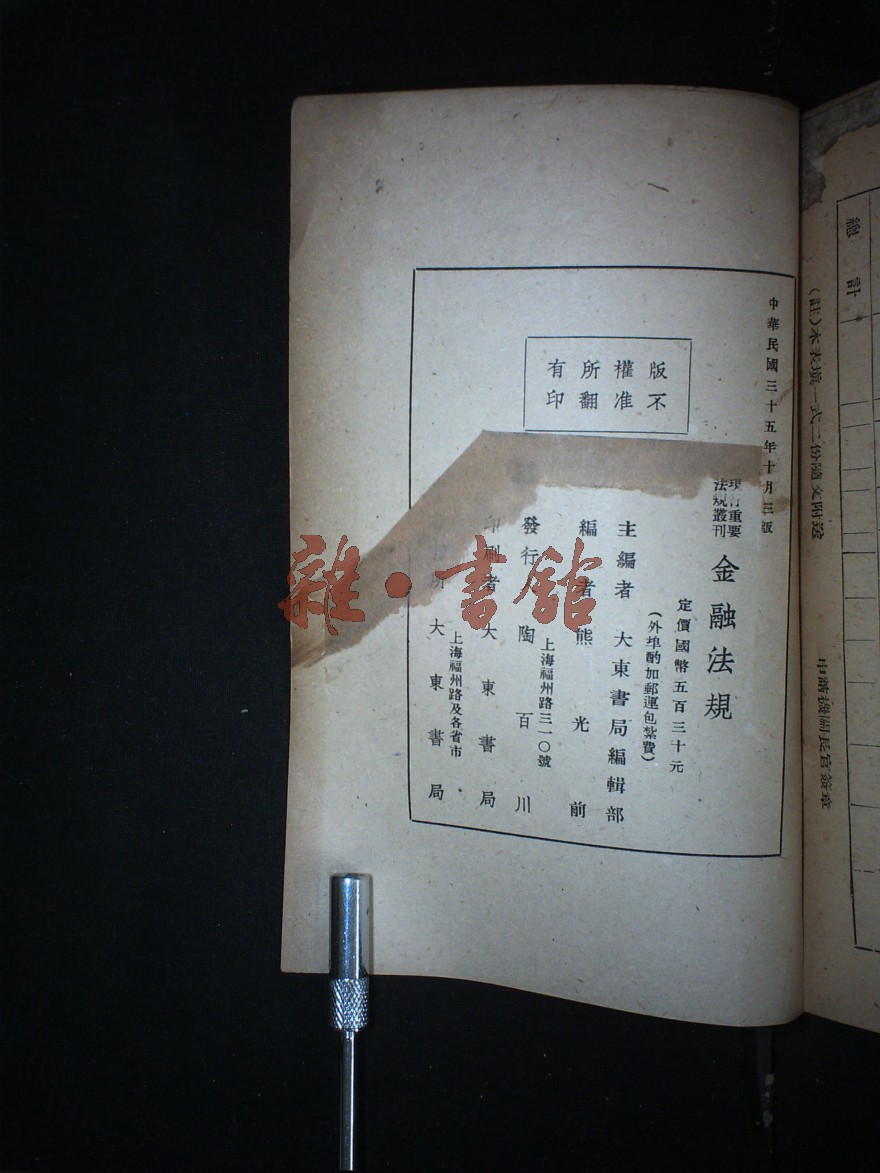 總計
(註)本表填一式二份隨文附送
申請機關長官簽章
中華民國三十五年十月三版
現行重要
法規叢刊
金融法規
定價國幣五百三十元
(外埠酌加郵運包紮費)
主編者 大東書局編輯部
編者 熊光前
發行人 陶百川
上海福州路三一〇號
印刷者 大東書局
上海福州路及各省市
大東書局
版權所有
不准翻印
雜·書館